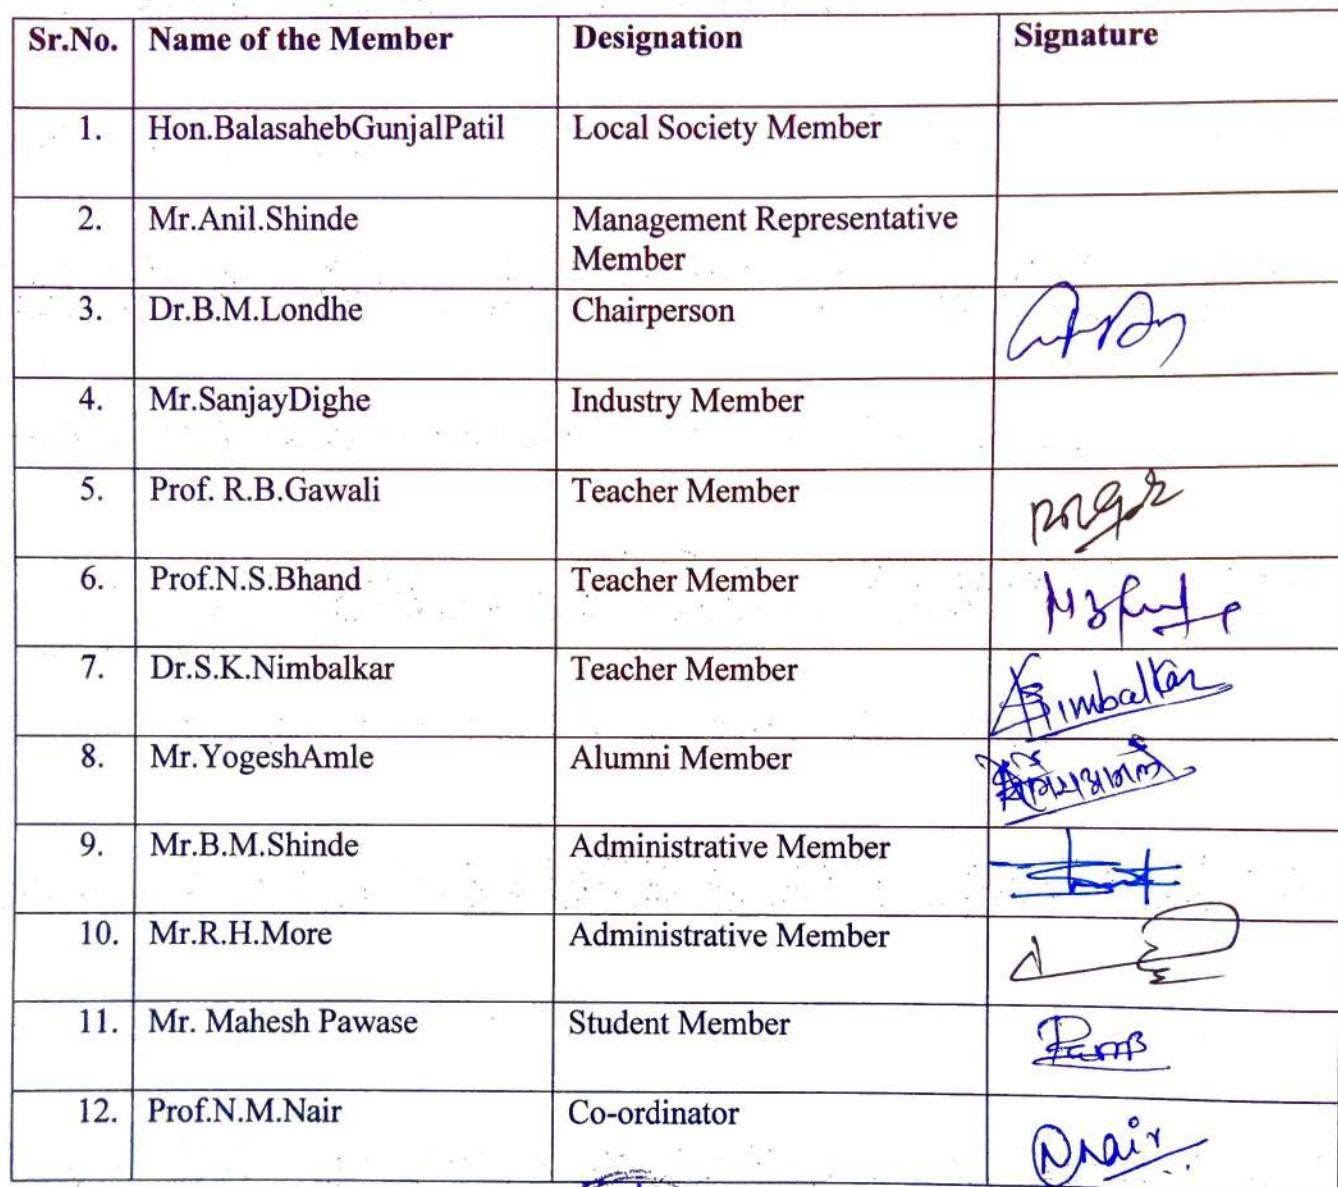 Sr.No. Name of the Member Designation Signature
1. Hon.BalasahebGunjalPatil Local Society Member
2. Mr.Anil.Shinde Management Representative
Member
3. Dr.B.M.Londhe Chairperson
4. Mr.SanjayDighe Industry Member
5. Prof. R.B.Gawali Teacher Member
6. Prof.N.S.Bhand Teacher Member
7. Dr.S.K.Nimbalkar Teacher Member Nimbalkar
8. Mr.YogeshAmle Alumni Member
9. Mr.B.M.Shinde Administrative Member
10. Mr.R.H.More Administrative Member
11. Mr. Mahesh Pawase Student Member
12. Prof.N.M.Nair Co-ordinator Nnair